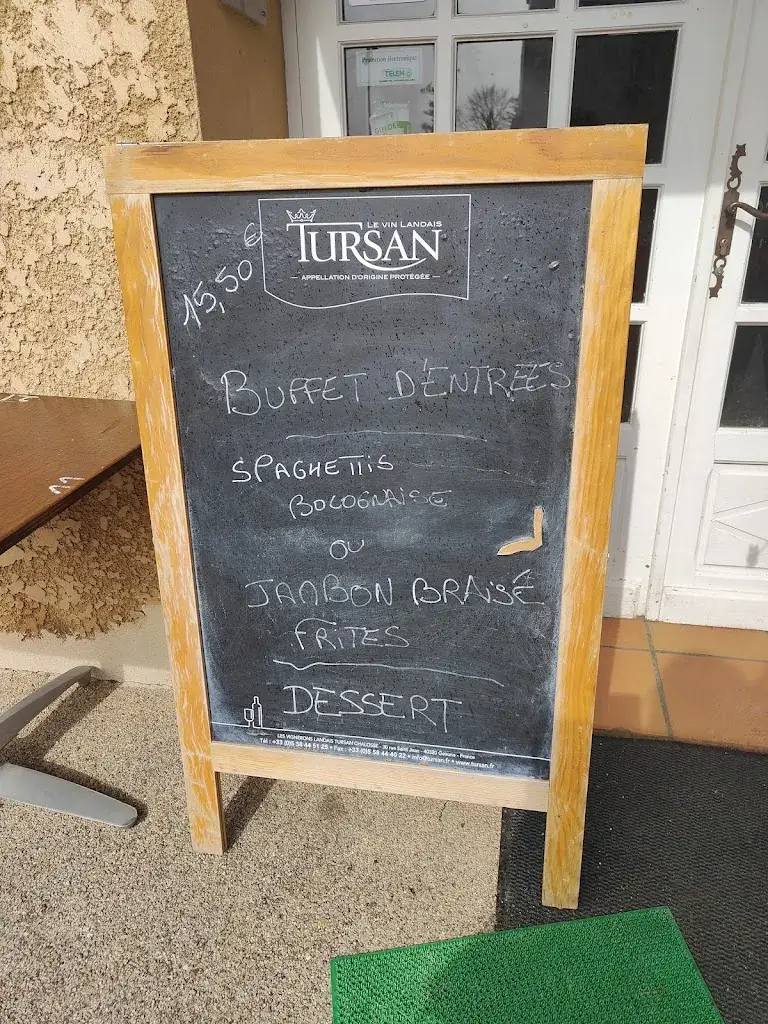 Protection électronique
TELEM
LE VIN LANDAIS
TURSAN
APPELLATION D'ORIGINE PROTÉGÉE
15,50 €
BUFFET D'ENTRÉES
SPAGHETTIS
BOLOGNAISE
OU
JAMBON BRAISÉ
FRITES
DESSERT
LES VIGNERONS LANDAIS TURSAN CHALOSSE - 30 rue Saint Jean - 40320 Geaune - France
Tél : +33 (0)5 58 44 51 25 • Fax : +33 (0)5 58 44 40 22 • info@tursan.fr • www.tursan.fr
11